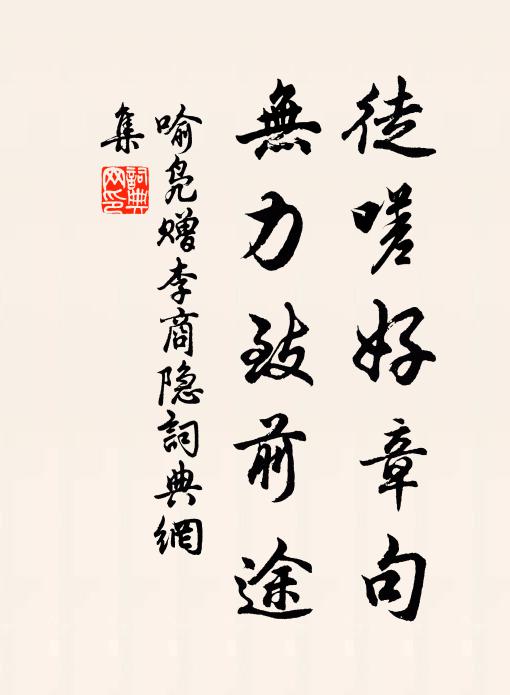 徒嗟好章句
無力致前途
喻凫赠李商隐詞典網
集
詞典網印